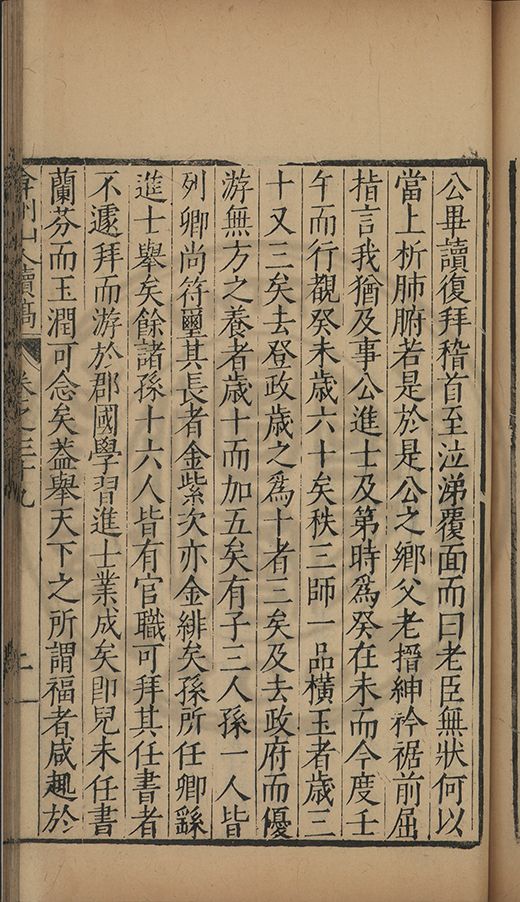 公畢讀復拜稽首至泣涕覆面而曰老臣無狀何以
當上析肺腑若是於是公之鄉父老搢紳衿裾前屈
指言我猶及事公進士及第時爲癸在未而今度壬
午而行覯癸未歲六十矣秩三師一品橫玉者歲三
十又三矣去登政歲之爲十者三矣及去政府而優
游無方之養者歲十而加五矣有子三人孫一人皆
列卿尚符璽其長者金紫次亦金緋矣孫所任卿繇
進士舉矣餘諸孫十六人皆有官職可拜其任書者
不遽拜而游於郡國學習進士業成矣卽兒未任書
蘭芬而玉潤可念矣蓋舉天下之所謂福者咸趣於
弇州山人續稿 卷之三十九